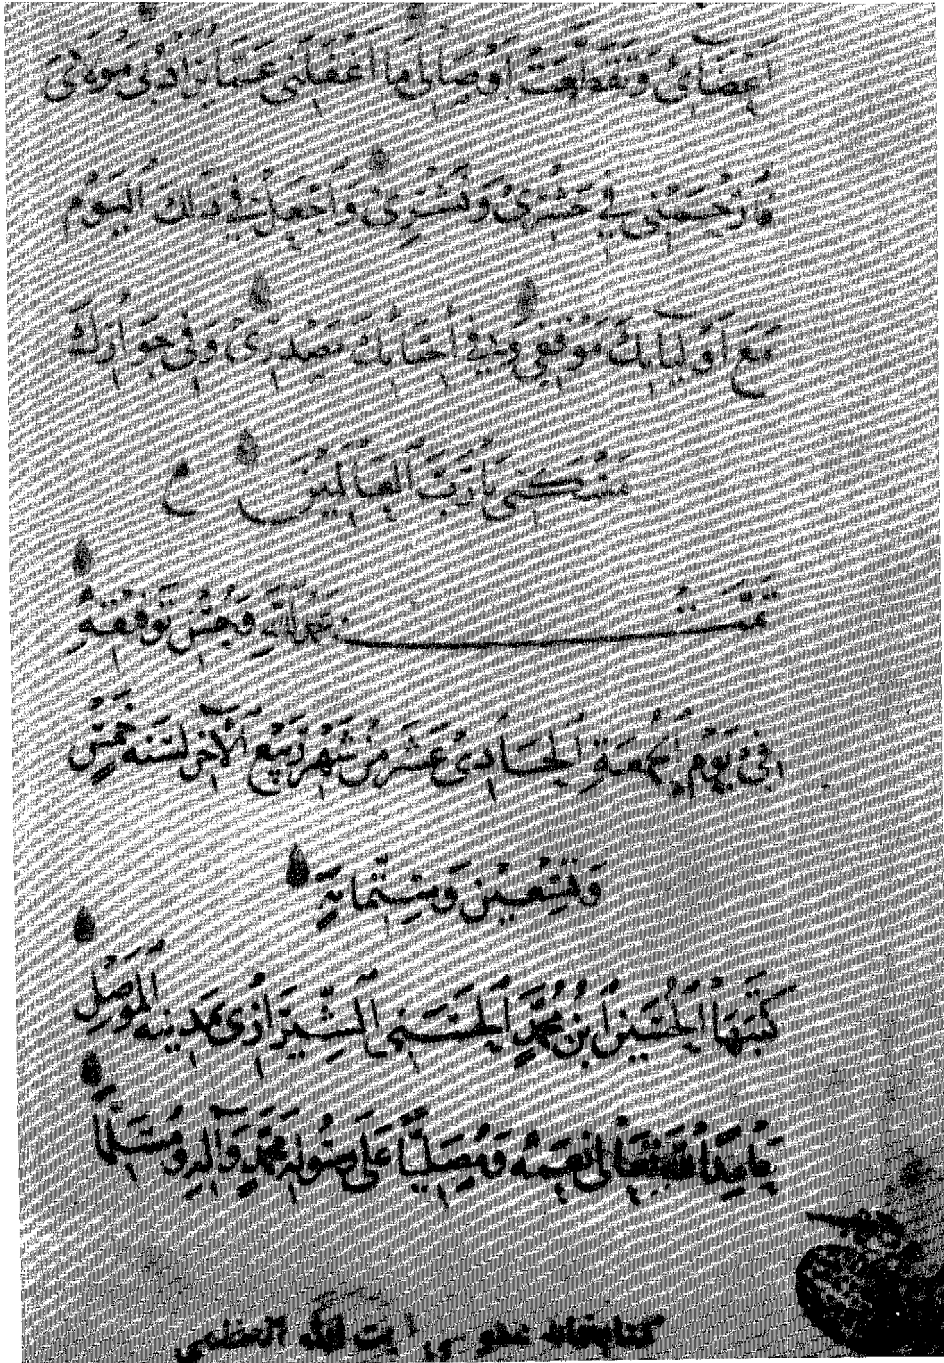 أَعْضَائِي وَتَقَطَّعَتْ أَوْصَالِي مَا أَغْفَلَنِي عَمَّا يُرَادُ بِي مَوْلَايَ
فَارْحَمْنِي فِي حَشْرِي وَنَشْرِي وَاجْعَلْ فِي ذٰلِكَ الْيَوْمِ
مَعَ أَوْلِيَائِكَ مَوْقِفِي وَفِي أَحِبَّائِكَ مَصْدَرِي وَفِي جِوَارِكَ
مَسْكَنِي يَا رَبَّ الْعَالَمِينَ
تَمَّتْ بِحَمْدِ اللّٰهِ وَبِحُسْنِ تَوْفِيقِهِ
فِي يَوْمِ الْجُمُعَةِ الْحَادِي عَشَرَ مِنْ شَهْرِ رَبِيعِ الْآخِرِ لِسَنَةِ خَمْسٍ
وَتِسْعِينَ وَسِتِّمِائَةٍ
كَتَبَهَا الْحُسَيْنُ ابْنُ مُحَمَّدٍ الْحَسَنِي الشِّيرَازِي بِمَدِينَةِ الْمَوْصِلِ
حَامِدًا لِلّٰهِ تَعَالَى نِعَمِهِ وَمُصَلِّيًا عَلَى رَسُولِهِ مُحَمَّدٍ وَآلِهِ وَمُسَلِّمًا
كتابخانه عمومى آيت الله العظمى